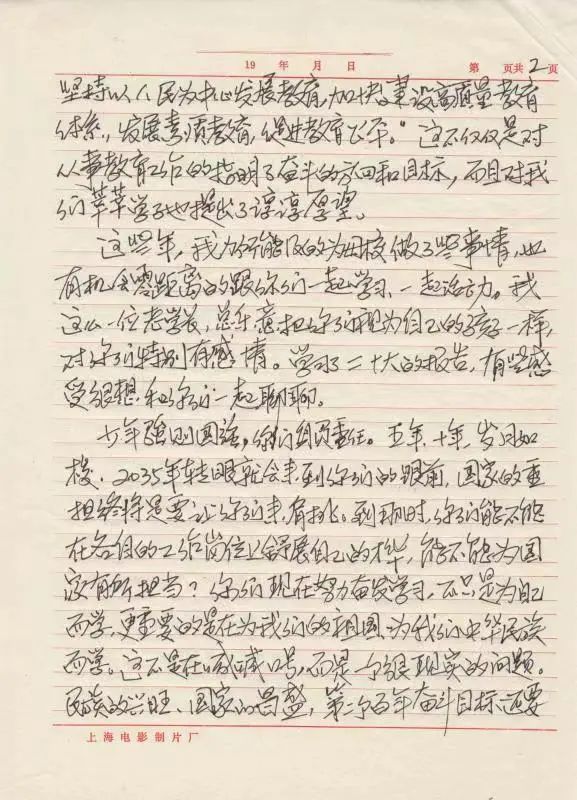 19 年 月 日 第 页共 2 页
坚持以人民为中心发展教育，加快建设高质量教育
体系，发展素质教育，促进教育公平。”这不仅仅是对
从事教育工作的指明了奋斗的方向和目标，而且对我
们莘莘学子也提出了谆谆厚望。
这些年，我力所能及的为母校做了些事情，也
有机会零距离的跟你们一起学习、一起活动。我
这么一位老学长，总乐意把你们视为自己的孩子一样，
对你们特别有感情。学习了二十大的报告，有些感
受很想和你们一起聊聊。
少年强则国强，你们肩负重任。五年、十年，岁月如
梭，2035年转眼就会来到你们的跟前，国家的重
担终将是要让你们来肩挑。到那时，你们能不能
在各自的工作岗位上舒展自己的才华，能不能为国
家有所担当？你们现在努力奋发学习，不只是为自己
而学，更重要的是在为我们的祖国、为我们中华民族
而学。这不是在喊口号，而是个很现实的问题。
民族的兴旺、国家的昌盛，第二个百年奋斗目标还要
上海电影制片厂